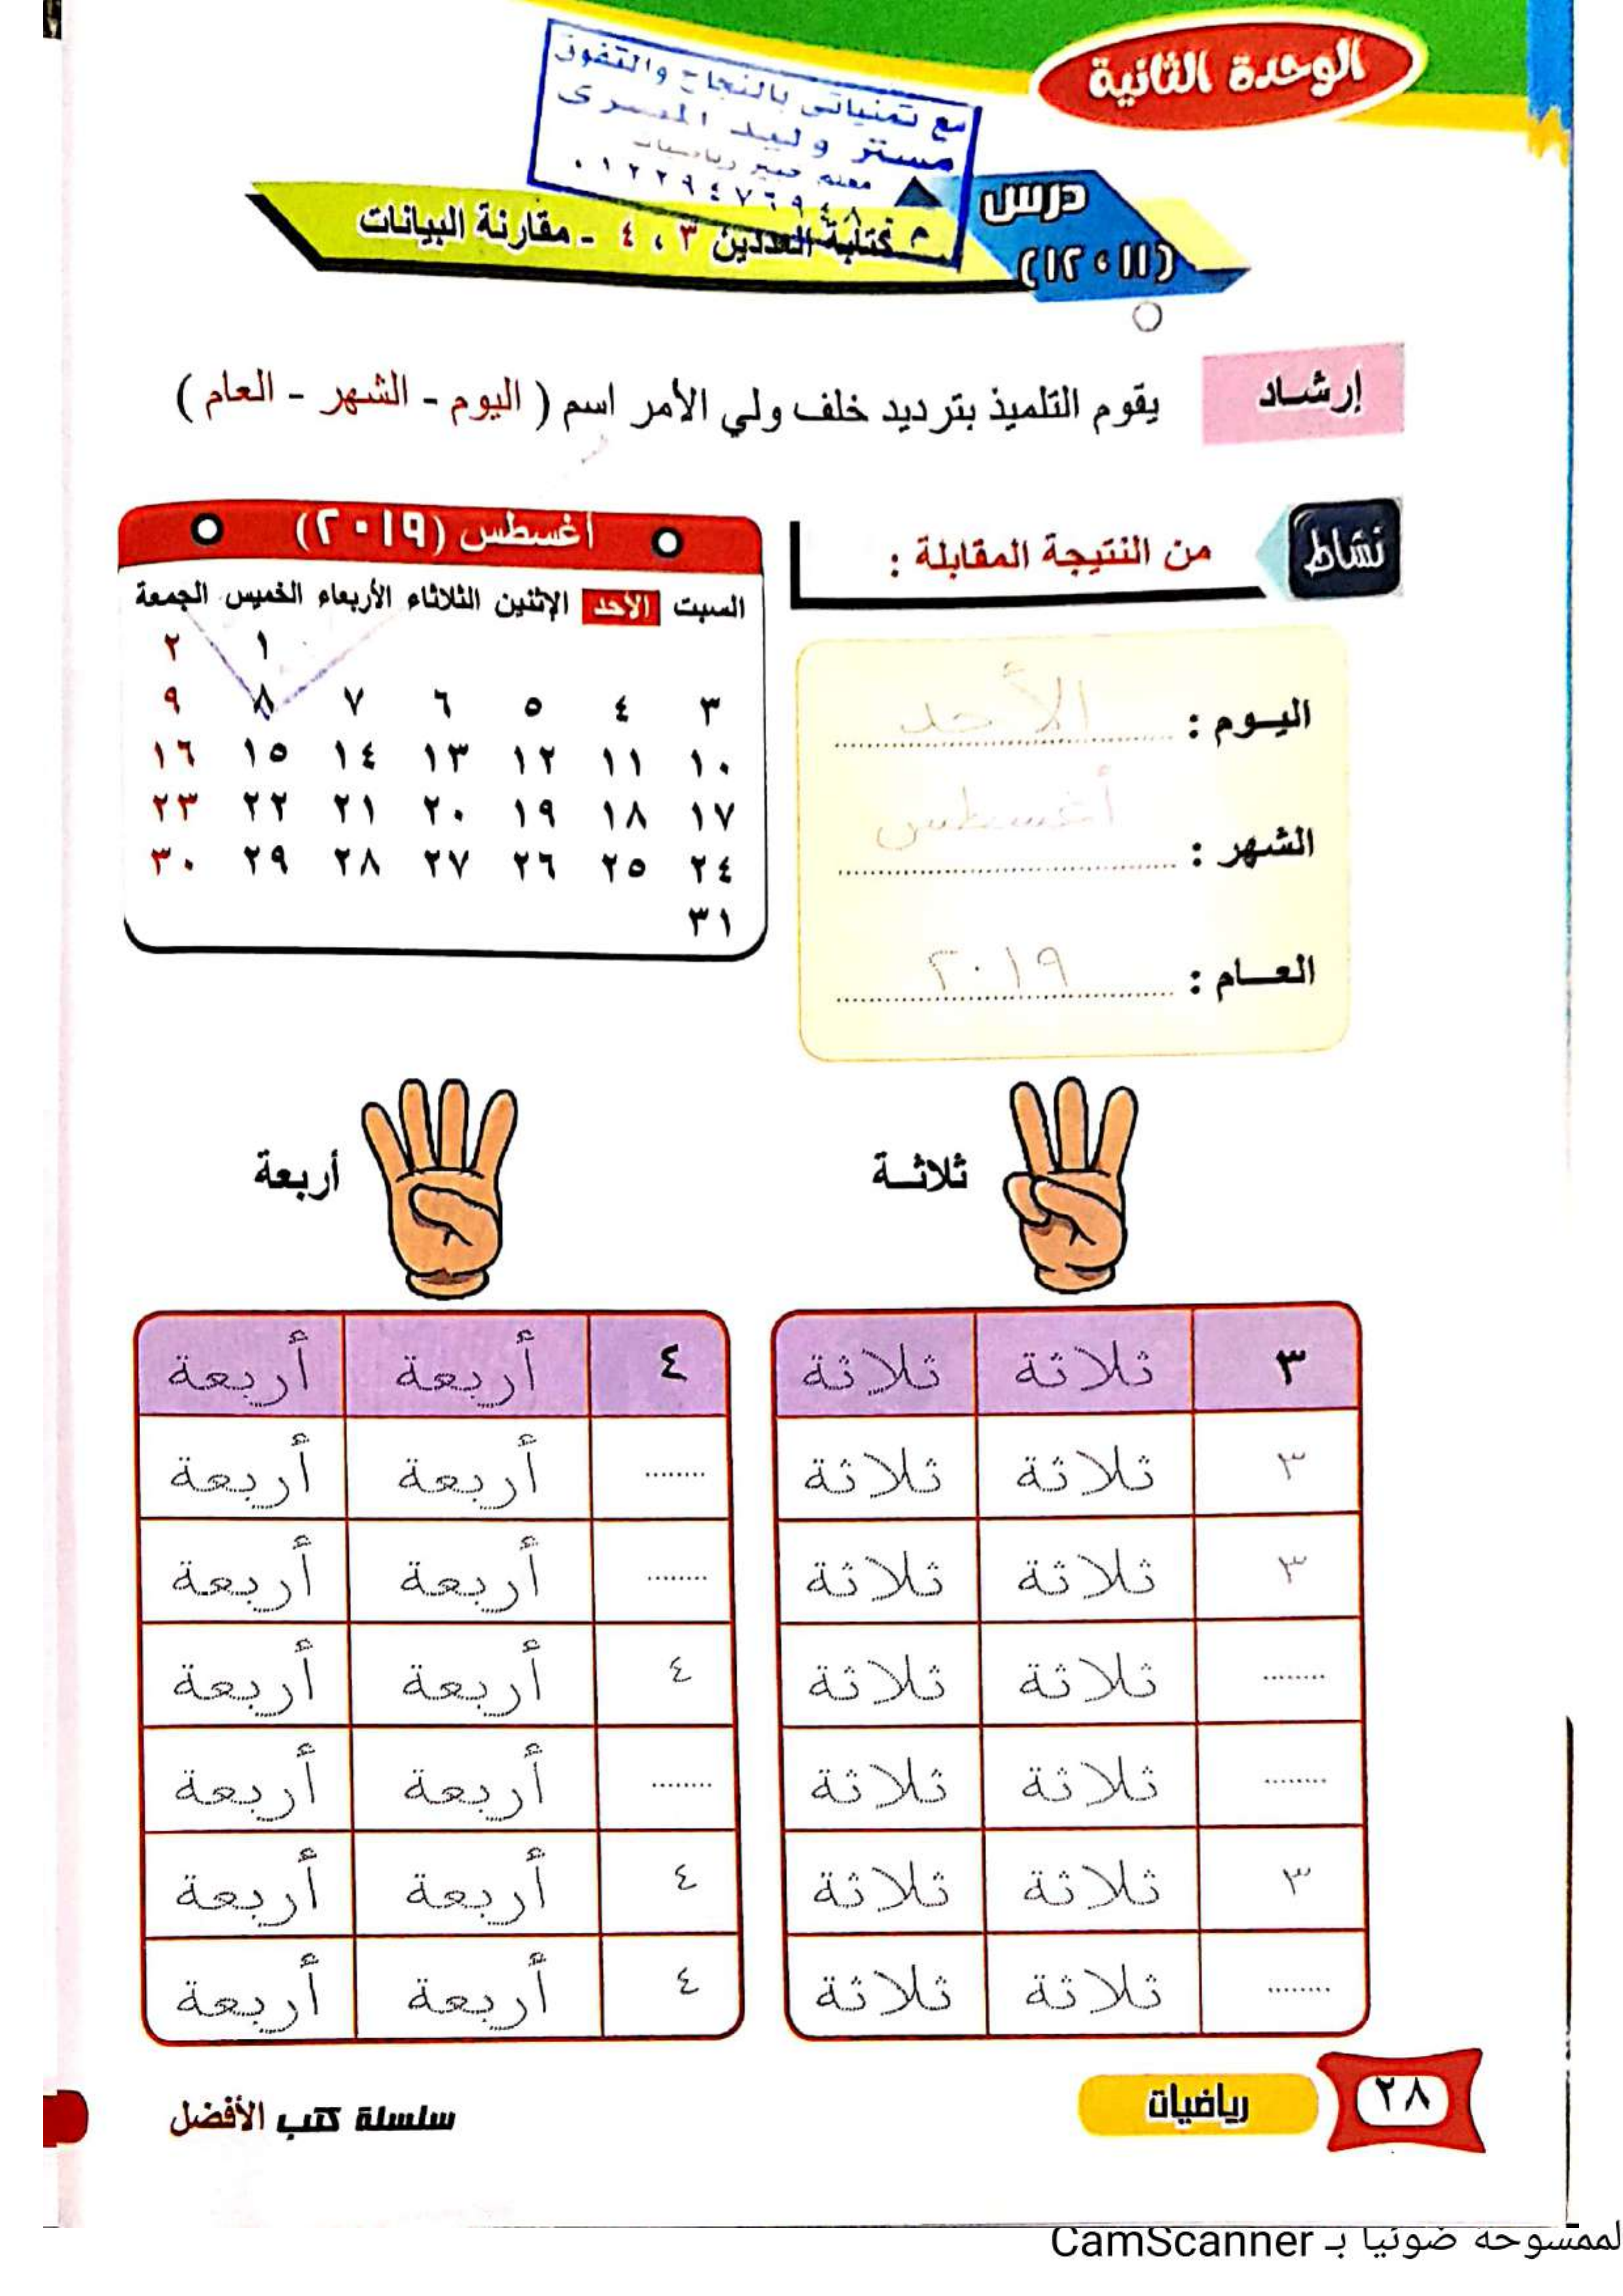 الوحدة الثانية
مع تمنياتى بالنجاح والتفوق
مستر وليد المصرى
معلم خبير رياضيات
٠١٢٢٩٤٧٦٩٤٨
درس
(١١ ، ١٢)
كتابة العددين ٣ ، ٤ - مقارنة البيانات
إرشاد
يقوم التلميذ بترديد خلف ولي الأمر اسم ( اليوم - الشهر - العام )
نشاط
من النتيجة المقابلة :
اليوم : الأحد
الشهر : أغسطس
العام : ٢٠١٩
أغسطس (٢٠١٩)
السبت الأحد الإثنين الثلاثاء الأربعاء الخميس الجمعة
١ ٢
٣ ٤ ٥ ٦ ٧ ٨ ٩
١٠ ١١ ١٢ ١٣ ١٤ ١٥ ١٦
١٧ ١٨ ١٩ ٢٠ ٢١ ٢٢ ٢٣
٢٤ ٢٥ ٢٦ ٢٧ ٢٨ ٢٩ ٣٠
٣١
ثلاثة
أربعة
٣ ثلاثة ثلاثة
٣ ثلاثة ثلاثة
٣ ثلاثة ثلاثة
........ ثلاثة ثلاثة
........ ثلاثة ثلاثة
٣ ثلاثة ثلاثة
........ ثلاثة ثلاثة
٤ أربعة أربعة
........ أربعة أربعة
........ أربعة أربعة
٤ أربعة أربعة
........ أربعة أربعة
٤ أربعة أربعة
٤ أربعة أربعة
٢٨
رياضيات
سلسلة كتب الأفضل
لممسوحة ضوئيا بـ CamScanner